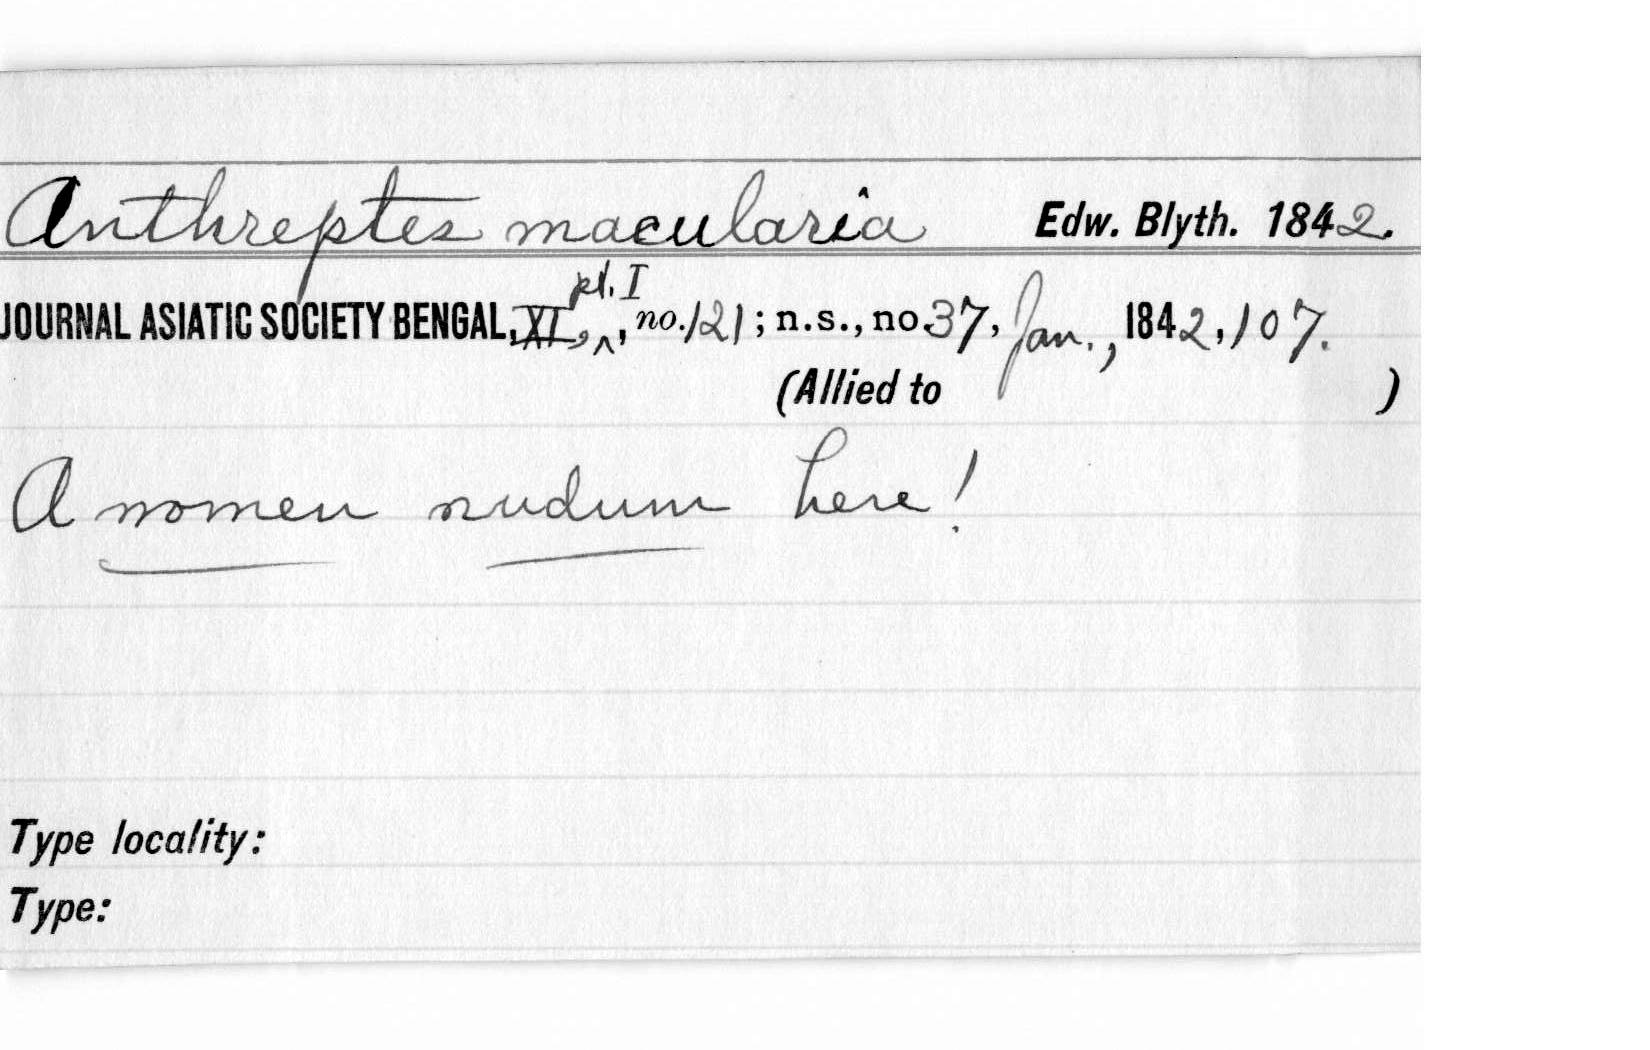 Anthreptes macularia Edw. Blyth. 1842.
pt. I
JOURNAL ASIATIC SOCIETY BENGAL, XI, ^, no. 121; n.s., no 37, Jan., 1842, 107.
(Allied to )
A nomen nudum here!
Type locality:
Type: